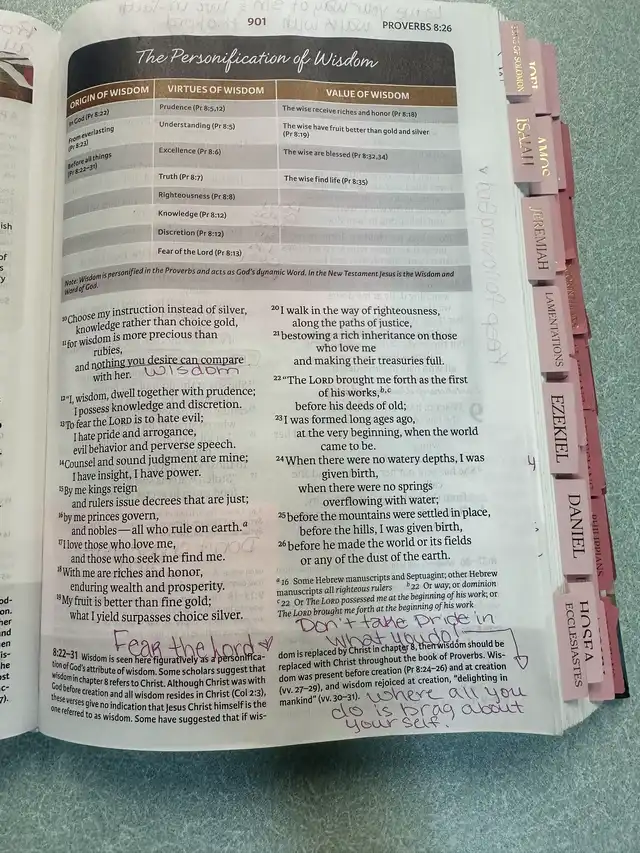 901
PROVERBS 8:26
The Personification of Wisdom
ORIGIN OF WISDOM
VIRTUES OF WISDOM
VALUE OF WISDOM
In God (Pr 8:22)
Prudence (Pr 8:5,12)
The wise receive riches and honor (Pr 8:18)
From everlasting
(Pr 8:23)
Understanding (Pr 8:5)
The wise have fruit better than gold and silver
(Pr 8:19)
Before all things
(Pr 8:22–31)
Excellence (Pr 8:6)
The wise are blessed (Pr 8:32,34)
Truth (Pr 8:7)
The wise find life (Pr 8:35)
Righteousness (Pr 8:8)
Knowledge (Pr 8:12)
Discretion (Pr 8:12)
Fear of the Lord (Pr 8:13)
Note: Wisdom is personified in the Proverbs and acts as God's dynamic Word. In the New Testament Jesus is the Wisdom and
Word of God.
10 Choose my instruction instead of silver,
knowledge rather than choice gold,
11 for wisdom is more precious than
rubies,
and nothing you desire can compare
with her. wisdom
12 "I, wisdom, dwell together with prudence;
I possess knowledge and discretion.
13 To fear the LORD is to hate evil;
I hate pride and arrogance,
evil behavior and perverse speech.
14 Counsel and sound judgment are mine;
I have insight, I have power.
15 By me kings reign
and rulers issue decrees that are just;
16 by me princes govern,
and nobles—all who rule on earth.a
17 I love those who love me,
and those who seek me find me.
18 With me are riches and honor,
enduring wealth and prosperity.
19 My fruit is better than fine gold;
what I yield surpasses choice silver.
Fear the Lord ♡
20 I walk in the way of righteousness,
along the paths of justice,
21 bestowing a rich inheritance on those
who love me
and making their treasuries full.
22 "The LORD brought me forth as the first
of his works,b,c
before his deeds of old;
23 I was formed long ages ago,
at the very beginning, when the world
came to be.
24 When there were no watery depths, I was
given birth,
when there were no springs
overflowing with water;
25 before the mountains were settled in place,
before the hills, I was given birth,
26 before he made the world or its fields
or any of the dust of the earth.
a 16 Some Hebrew manuscripts and Septuagint; other Hebrew
manuscripts all righteous rulers b 22 Or way; or dominion
c 22 Or The LORD possessed me at the beginning of his work; or
The LORD brought me forth at the beginning of his work
Don't take Pride in
what you do!
8:22–31 Wisdom is seen here figuratively as a personifica-
tion of God's attribute of wisdom. Some scholars suggest that
wisdom in chapter 8 refers to Christ. Although Christ was with
God before creation and all wisdom resides in Christ (Col 2:3),
these verses give no indication that Jesus Christ himself is the
one referred to as wisdom. Some have suggested that if wis-
dom is replaced by Christ in chapter 8, then wisdom should be
replaced with Christ throughout the book of Proverbs. Wis-
dom was present before creation (Pr 8:24–26) and at creation
(vv. 27–29), and wisdom rejoiced at creation, "delighting in
mankind" (vv. 30–31).
where all you
do is brag about
yourself.
SONG OF SOLOMON
JOEL
ISAIAH
AMOS
JEREMIAH
LAMENTATIONS
EZEKIEL
DANIEL
PHILIPPIANS
HOSEA
ECCLESIASTES